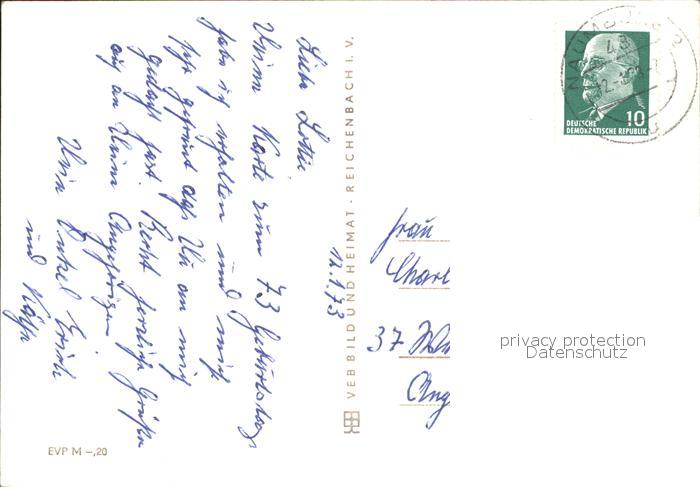 12.1.73
Liebe Lottie
Deine Karte zum 73 Geburtstage
habe ich erhalten und mich
sehr gefreut daß Du an mich
gedacht hast. Recht herzliche Grüße
auch an Deine Angehörigen
Dein Onkel Erich
und Käthe
VEB BILD UND HEIMAT · REICHENBACH I. V.
EVP M –,20
NAUMBURG
DEUTSCHE
DEMOKRATISCHE REPUBLIK
10
Frau
Charl
37
Ang
privacy protection
Datenschutz